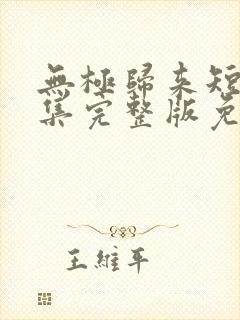 無極歸來短
集完整版免
王維平